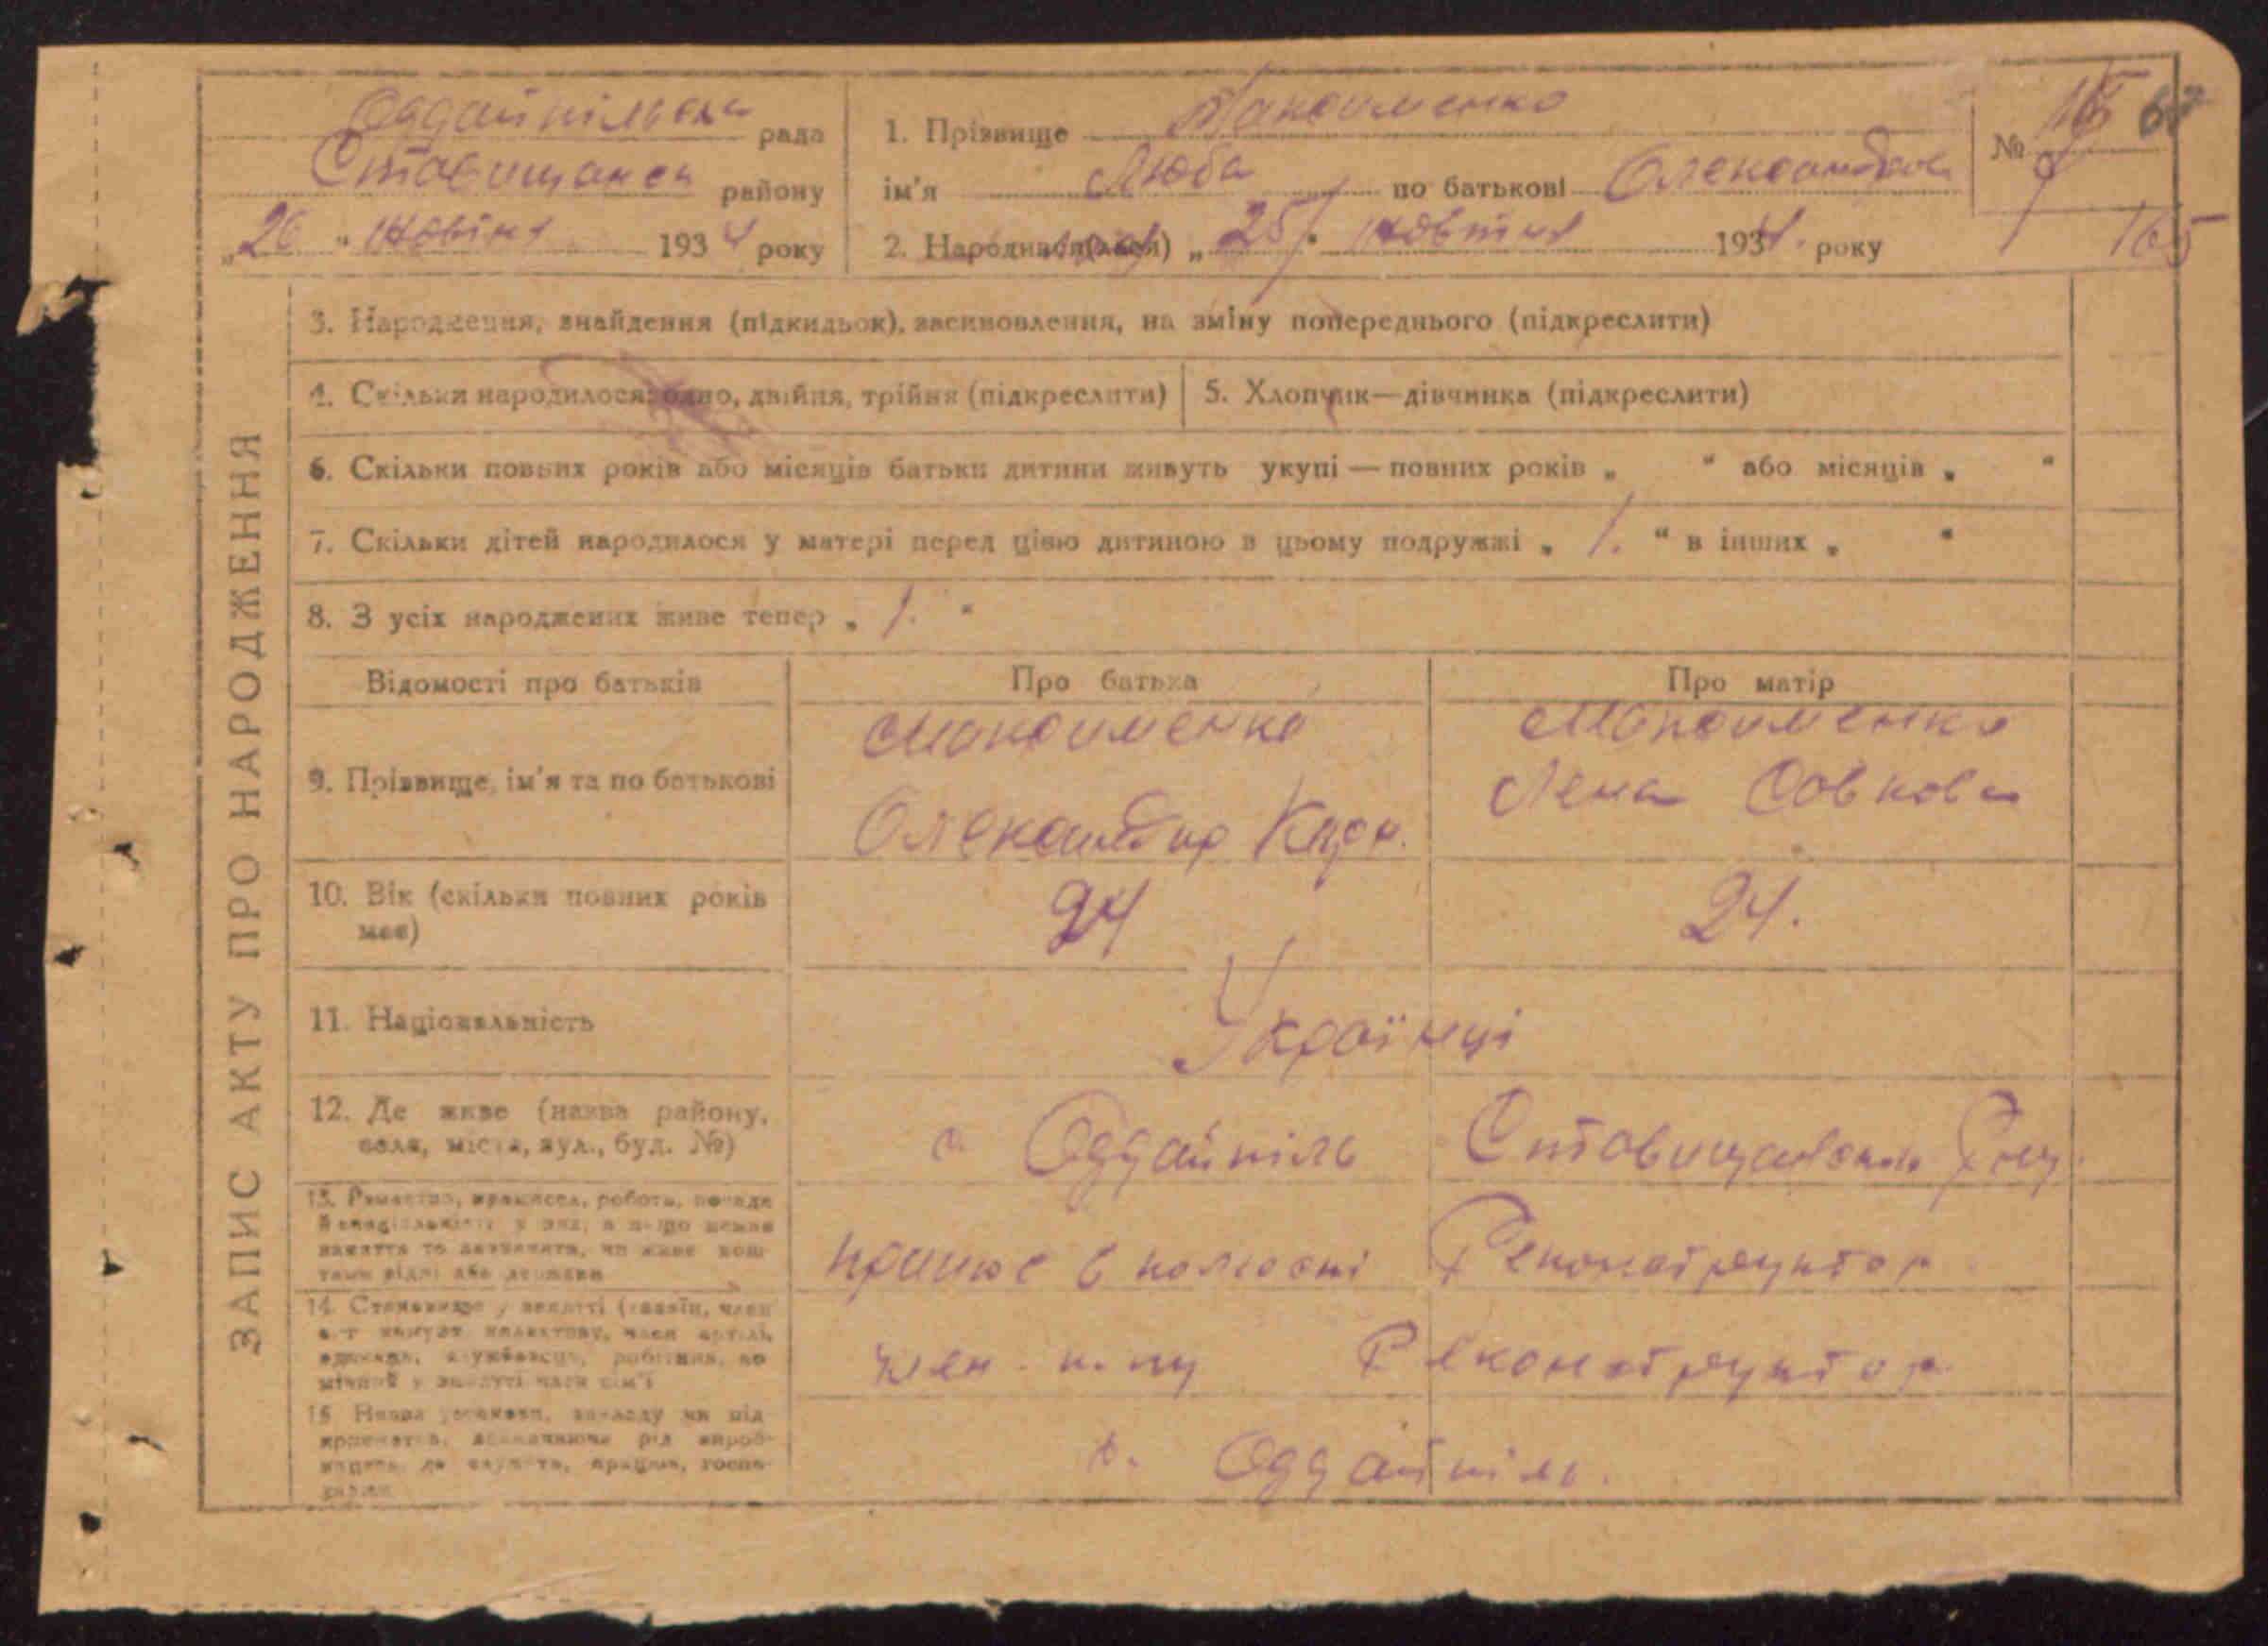 Оддайпільська рада
Ставищанськ району
„26“ жовтня 1934 року
1. Прізвище Максименко
ім'я Люба по батькові Олександров
2. Народився(лася) „25“ жовтня 1934. року
№ 67
165
ЗАПИС АКТУ ПРО НАРОДЖЕННЯ
3. Народження, знайдення (підкидьок), засиновлення, на зміну попереднього (підкреслити)
4. Скільки народилося: одно, двійня, трійня (підкреслити)
5. Хлопчик—дівчинка (підкреслити)
6. Скільки повних років або місяців батьки дитини живуть укупі — повних років „ “ або місяців „ “
7. Скільки дітей народилося у матері перед цією дитиною в цьому подружжі „ 1. “ в інших „ “
8. З усіх народжених живе тепер „ 1. “
Відомості про батьків
Про батька
Про матір
9. Прізвище, ім'я та по батькові
Максименко
Олександр
Максименко
Лена Совкова
10. Вік (скільки повних років має)
24
24.
11. Національність
Українці
12. Де живе (назва району,
села, міста, вул., буд. №)
с. Оддайпіль Ставищанськ
13. Ремество, промисел, робота, посада
працює в колгоспі Реконструктор
14. Становище у занятті
член к-пу Реконструктор
с. Оддайпіль.